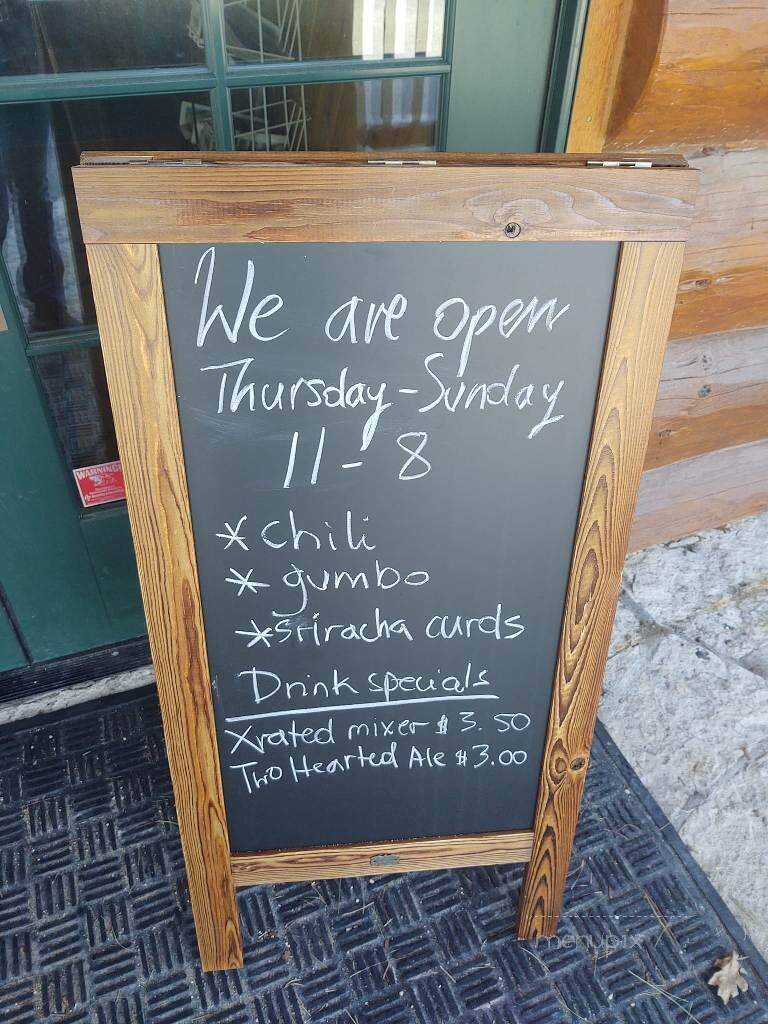 We are open
Thursday-Sunday
11-8
* chili
* gumbo
* sriracha curds
Drink specials
Xrated mixer $3.50
Two Hearted Ale $3.00
WARNING
menupix